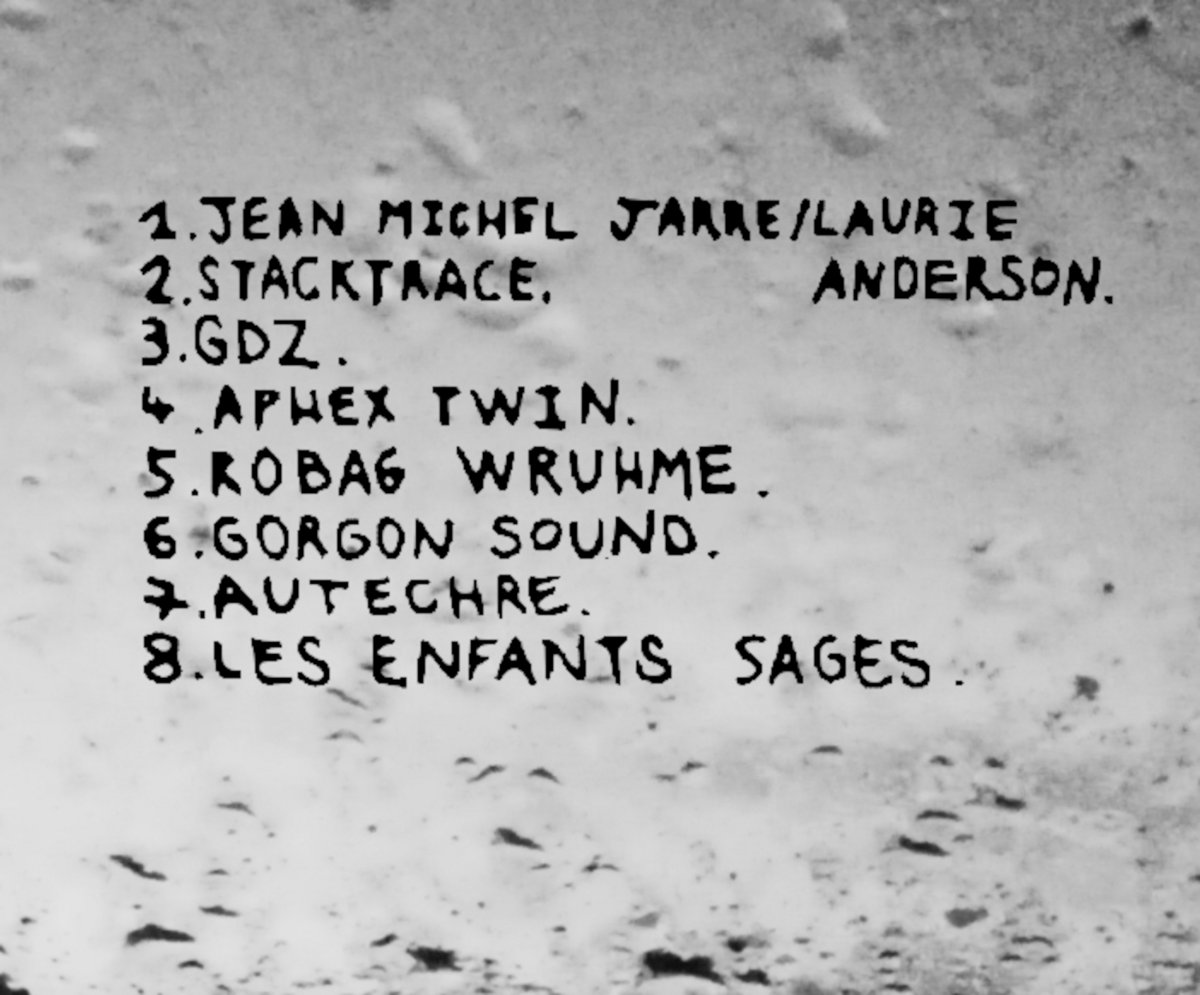 1.JEAN MICHEL JARRE/LAURIE
2.STACKTRACE. ANDERSON.
3.GDZ.
4.APHEX TWIN.
5.ROBAG WRUHME.
6.GORGON SOUND.
7.AUTECHRE.
8.LES ENFANTS SAGES.